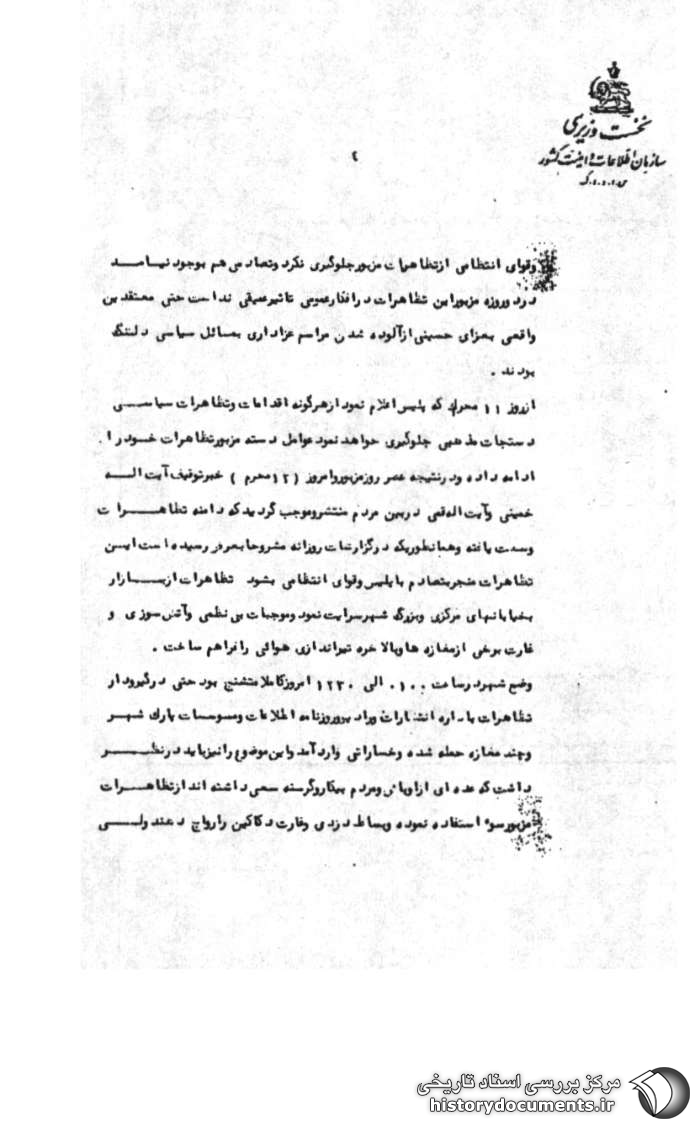 نخست وزیری
سازمان اطلاعات و امنیت کشور
س.ا.و.ا.ک
۲
وقوای انتظامی ازتظاهرات مزبور جلوگیری نکرد وتصادمی هم بوجود نیامد
درد وروزه مزبور این تظاهرات درافکارعمومی تاثیرعمیقی نداشت حتی معتقدین
واقعی بعزای حسینی از آلوده شدن مراسم عزاداری بمسائل سیاسی دلتنگ
بودند .
ازروز ۱۱ محرم که پلیس اعلام نمود ازهرگونه اقدامات وتظاهرات سیاسی
دستجات مذهبی جلوگیری خواهد نمود عوامل دسته مزبور تظاهرات خود را
ادامه داده ودرنتیجه عصر روزمزبور وامروز ( ۱۲ محرم ) خبر توقیف آیت اله
خمینی وآیت اله قمی دربین مردم منتشر وموجب گردید که دامنه تظاهرات
وسعت یافته وهمانطوریکه درگزارشات روزانه مشروحا بعرض رسیده است این
تظاهرات منجربتصادم با پلیس وقوای انتظامی بشود تظاهرات ازبازار
بخیابانهای مرکزی وبزرگ شهرسرایت نمود وموجبات بی نظمی وآتش سوزی و
غارت برخی ازمغازه ها وبالاخره تیراندازی هوائی را فراهم ساخت .
وضع شهرد رساعت ۰۱۰۰ الی ۱۲۳۰ امروز کاملا متشنج بود حتی درگیرودار
تظاهرات باداره انتشارات ورادیو وروزنامه اطلاعات وموسسات پارک شهر
وچند مغازه حمله شده وخساراتی وارد آمد واین موضوع را نیزباید درنظر
داشت که عده ای ازاوباش ومردم بیکاروگرسنه سعی داشته اند ازتظاهرات
مزبورسوء استفاده نموده وبساط دزدی وغارت دکاکین را رواج دهند ولی
مرکز بررسی اسناد تاریخی
historydocuments.ir